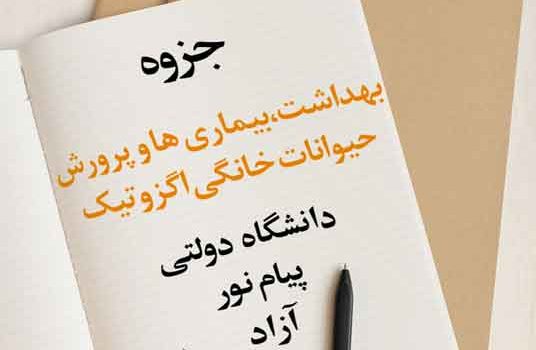 جزوه
بهداشت،بیماری ها و پرورش
حیوانات خانگی اگزوتیک
دانشگاه دولتی
پیام نور
آزاد